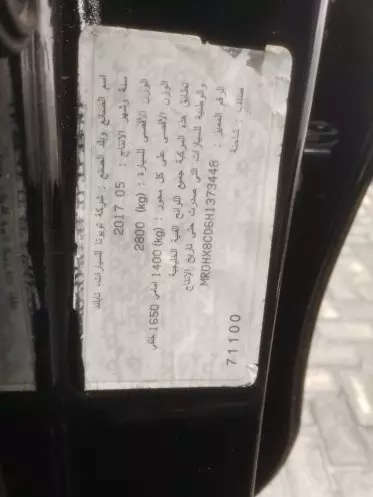 اسم الصانع وبلد الصنع : شركة تويوتا للسيارات، تايلند
سنة وشهر الانتاج : 2017 05
الوزن الأقصى للسيارة : (kg) 2800
الوزن الأقصى على كل محور : (kg) 1400 أمامي 1650 خلفي
تطابق هذه المركبة جميع اللوائح الفنية الخليجية
والوطنية للسيارات التي صدرت حتى تاريخ الانتاج
الرقم المميز : MR0HX8CD6H1373448
صنف : شاحنة
71100